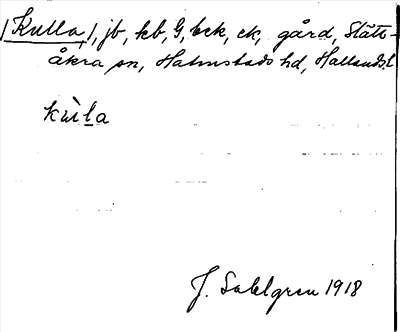 /Kulla/, jb, kb, G, bck, ck, gård, Slätt-
åkra sn, Halmstads hd, Hallands l.
kùl̠a
J. Sahlgren 1918